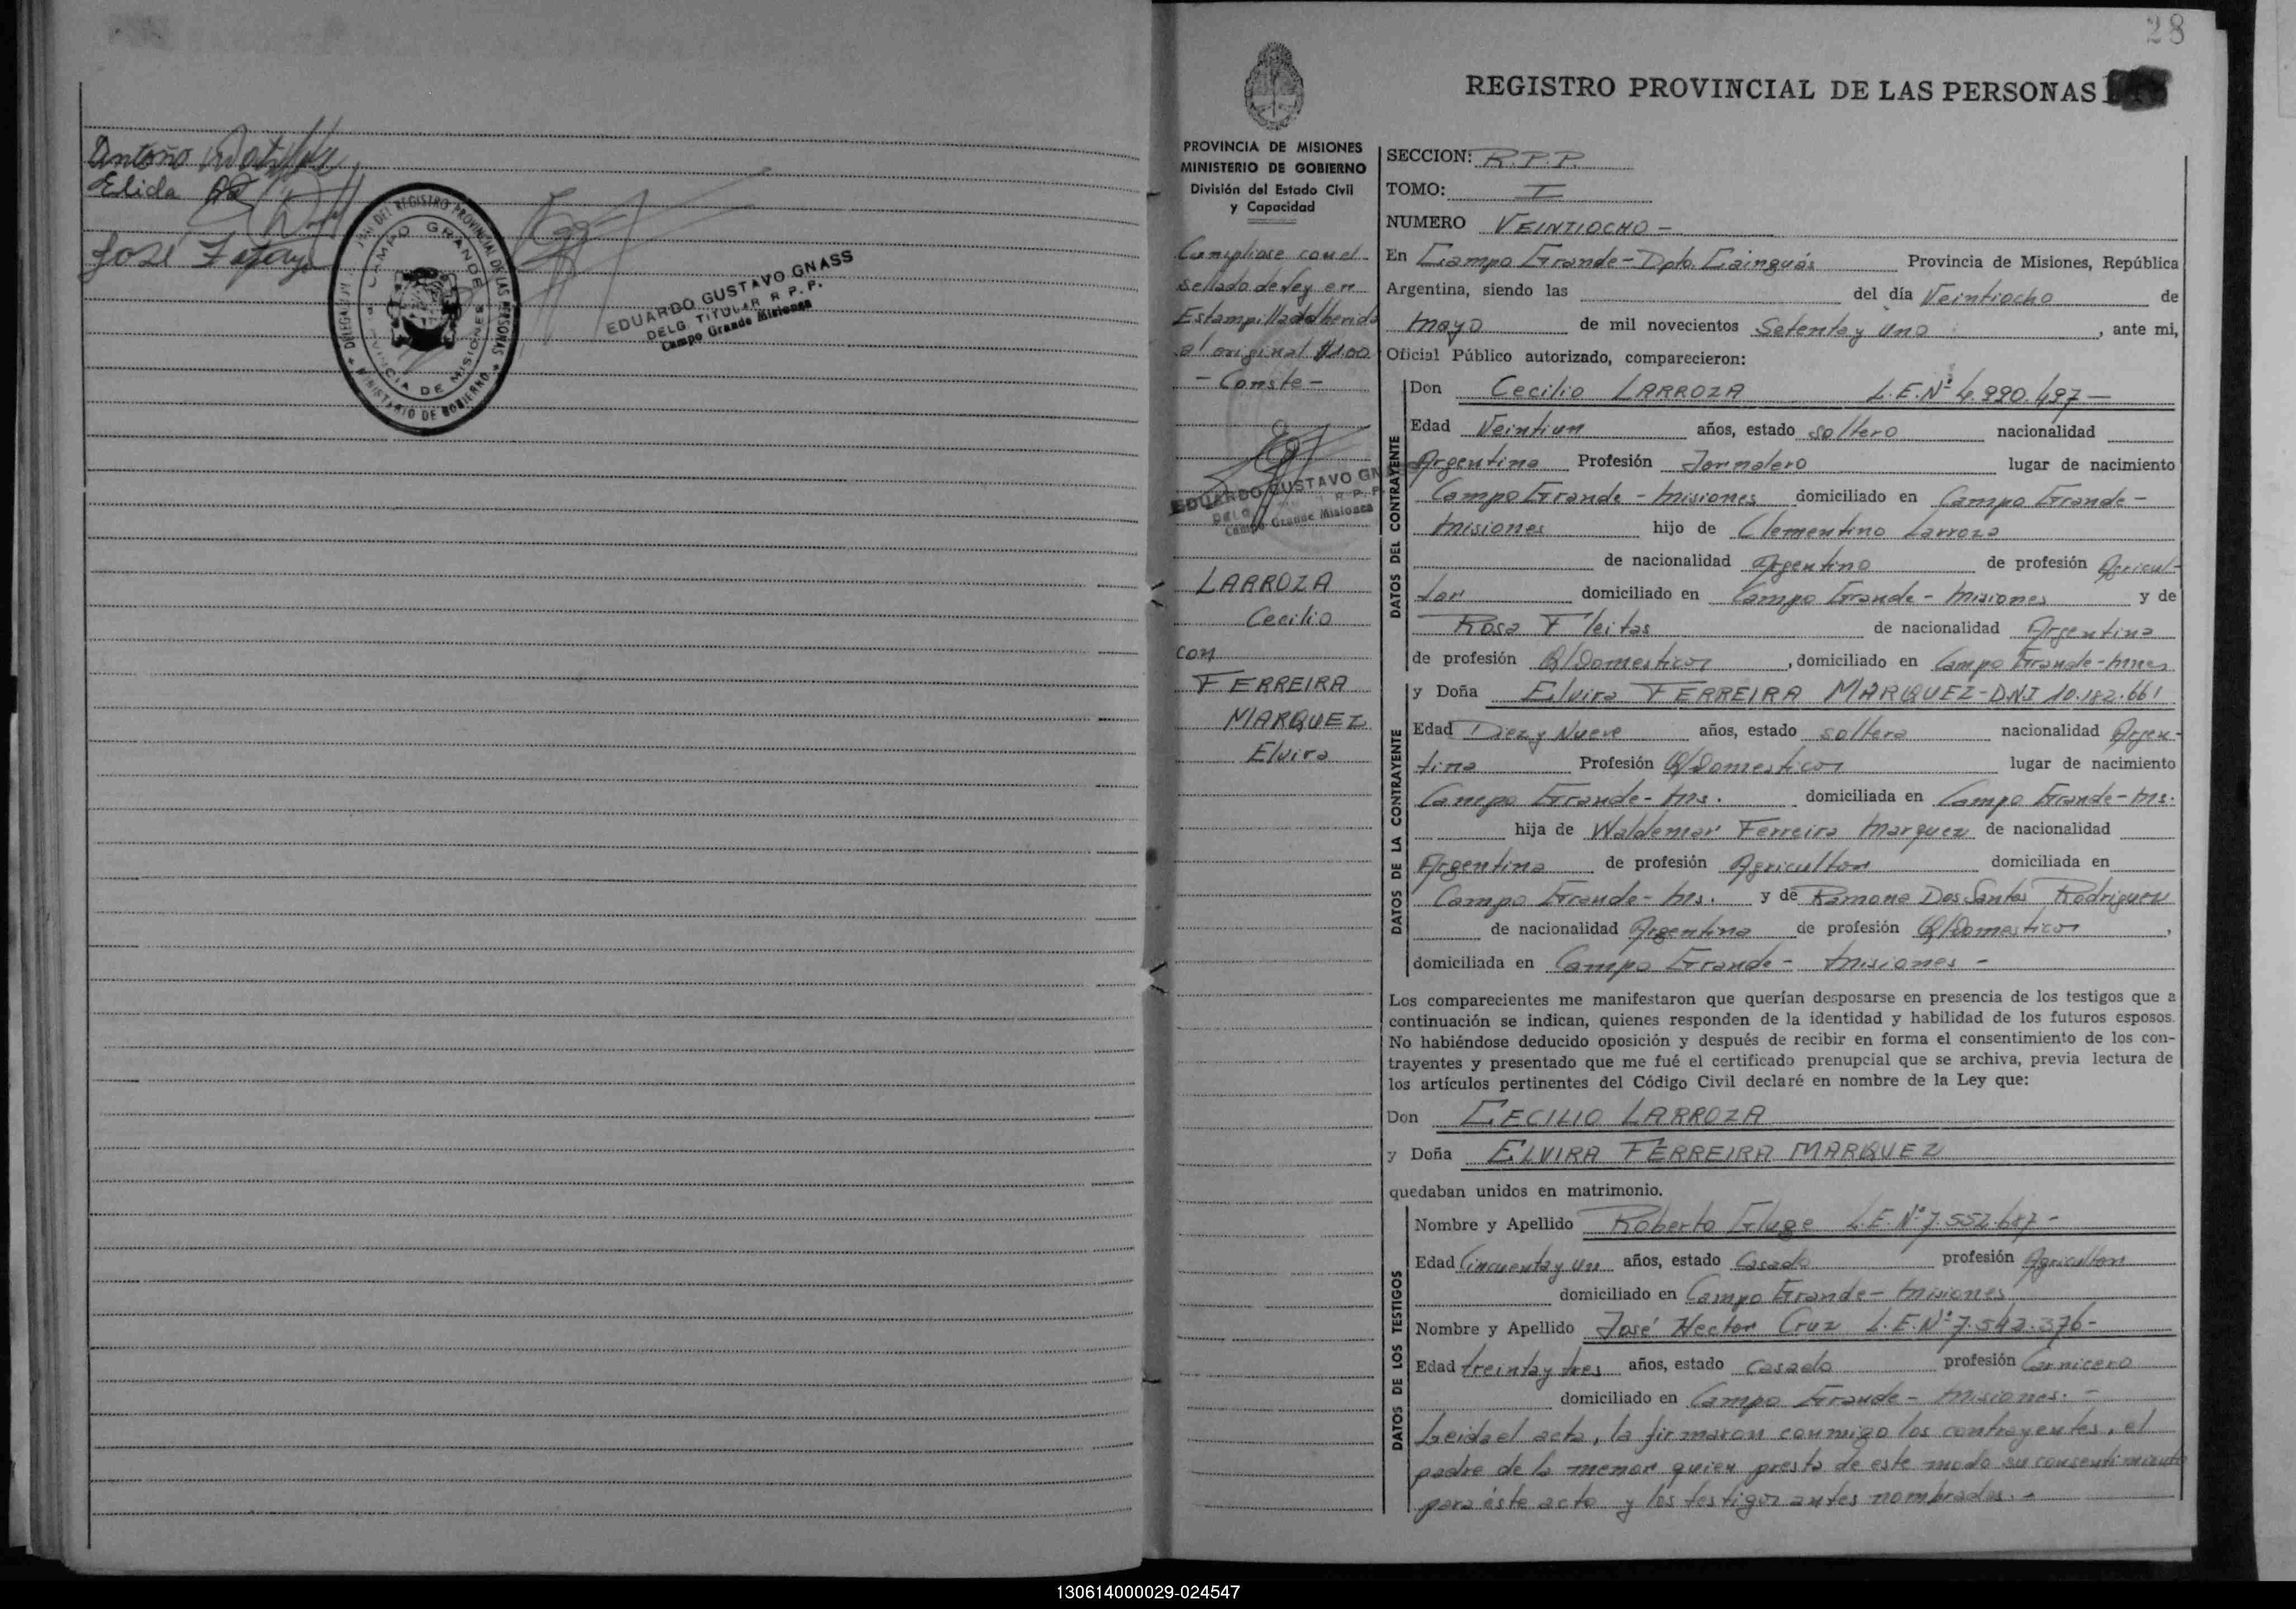 Antonio
Elida
José Zatayo
DELEGACION DEL REGISTRO PROVINCIAL DE LAS PERSONAS
CAMPO GRANDE
PROVINCIA DE MISIONES
MINISTERIO DE GOBIERNO
EDUARDO GUSTAVO GNASS
DELG. TITULAR R. P. P.
Campo Grande Misiones
28
REGISTRO PROVINCIAL DE LAS PERSONAS
PROVINCIA DE MISIONES
MINISTERIO DE GOBIERNO
División del Estado Civil
y Capacidad
Cumpliose con el
sellado de ley en
Estampilla adherida
al original $1.00
- Conste -
EDUARDO GUSTAVO GN
DELG R. P. P.
Campo Grande Misiones
LARROZA
Cecilio
con
FERREIRA
MARQUEZ
Elvira
SECCION: R.P.P.
TOMO: I
NUMERO VEINTIOCHO -
En Campo Grande - Dpto. Cainguás Provincia de Misiones, República
Argentina, siendo las del día Veintiocho de
mayo de mil novecientos Setenta y Uno, ante mi,
Oficial Público autorizado, comparecieron:
DATOS DEL CONTRAYENTE
Don Cecilio LARROZA L.E.Nº 4.990.497 -
Edad Veintiun años, estado soltero nacionalidad
Argentina Profesión Jornalero lugar de nacimiento
Campo Grande - Misiones domiciliado en Campo Grande -
Misiones hijo de Clementino Larroza
de nacionalidad Argentino de profesión Agricul-
tor domiciliado en Campo Grande - Misiones y de
Rosa Fleitas de nacionalidad Argentina
de profesión Q/Domesticos, domiciliado en Campo Grande - Mnes
DATOS DE LA CONTRAYENTE
y Doña Elvira FERREIRA MARQUEZ - DNI 10.182.661
Edad Diez y Nueve años, estado soltera nacionalidad Argen-
tina Profesión Q/Domesticos lugar de nacimiento
Campo Grande - Ms. domiciliada en Campo Grande - Ms.
hija de Waldemar Ferreira Marquez de nacionalidad
Argentina de profesión Agricultor domiciliada en
Campo Grande - Ms. y de Ramona Dos Santos Rodriguez
de nacionalidad Argentina de profesión Q/Domesticos,
domiciliada en Campo Grande - Misiones -
Los comparecientes me manifestaron que querían desposarse en presencia de los testigos que a
continuación se indican, quienes responden de la identidad y habilidad de los futuros esposos.
No habiéndose deducido oposición y después de recibir en forma el consentimiento de los con-
trayentes y presentado que me fué el certificado prenupcial que se archiva, previa lectura de
los artículos pertinentes del Código Civil declaré en nombre de la Ley que:
Don CECILIO LARROZA
y Doña ELVIRA FERREIRA MARQUEZ
quedaban unidos en matrimonio.
DATOS DE LOS TESTIGOS
Nombre y Apellido Roberto Gluge L.E.Nº 7.552.687 -
Edad Cincuenta y Un años, estado Casado profesión Agricultor
domiciliado en Campo Grande - Misiones
Nombre y Apellido José Hector Cruz L.E.Nº 7.542.376 -
Edad treinta y tres años, estado Casado profesión Carnicero
domiciliado en Campo Grande - Misiones. -
Leida el acta, la firmaron conmigo los contrayentes, el
padre de la menor quien presta de este modo su consentimiento
para éste acto y los testigos antes nombrados. -
130614000029-024547